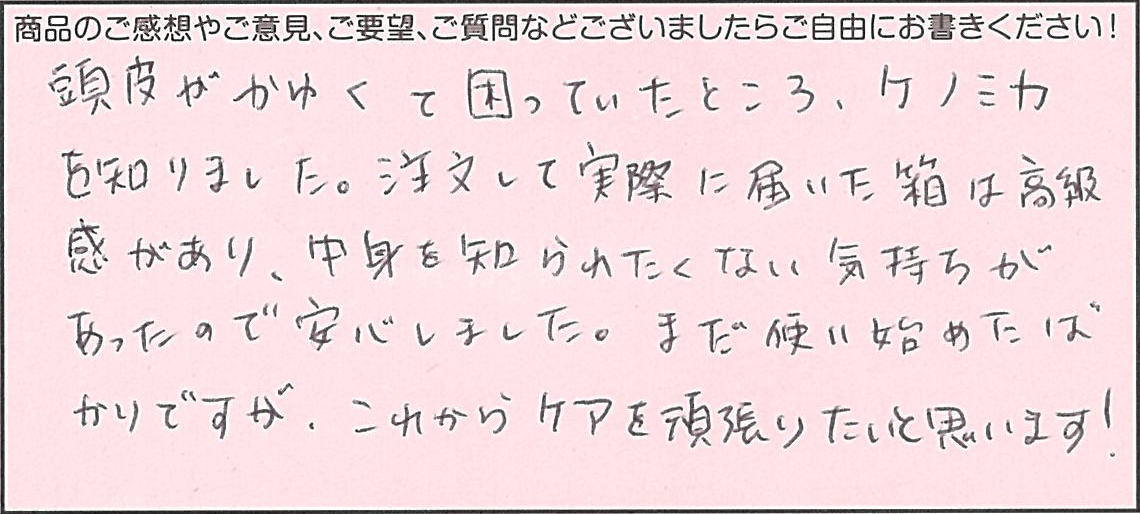 商品のご感想やご意見、ご要望、ご質問などございましたらご自由にお書きください！
頭皮がかゆくて困っていたところ、ケノミカ
を知りました。注文して実際に届いた箱は高級
感があり、中身を知られたくない気持ちが
あったので安心しました。まだ使い始めたば
かりですが、これからケアを頑張りたいと思います！